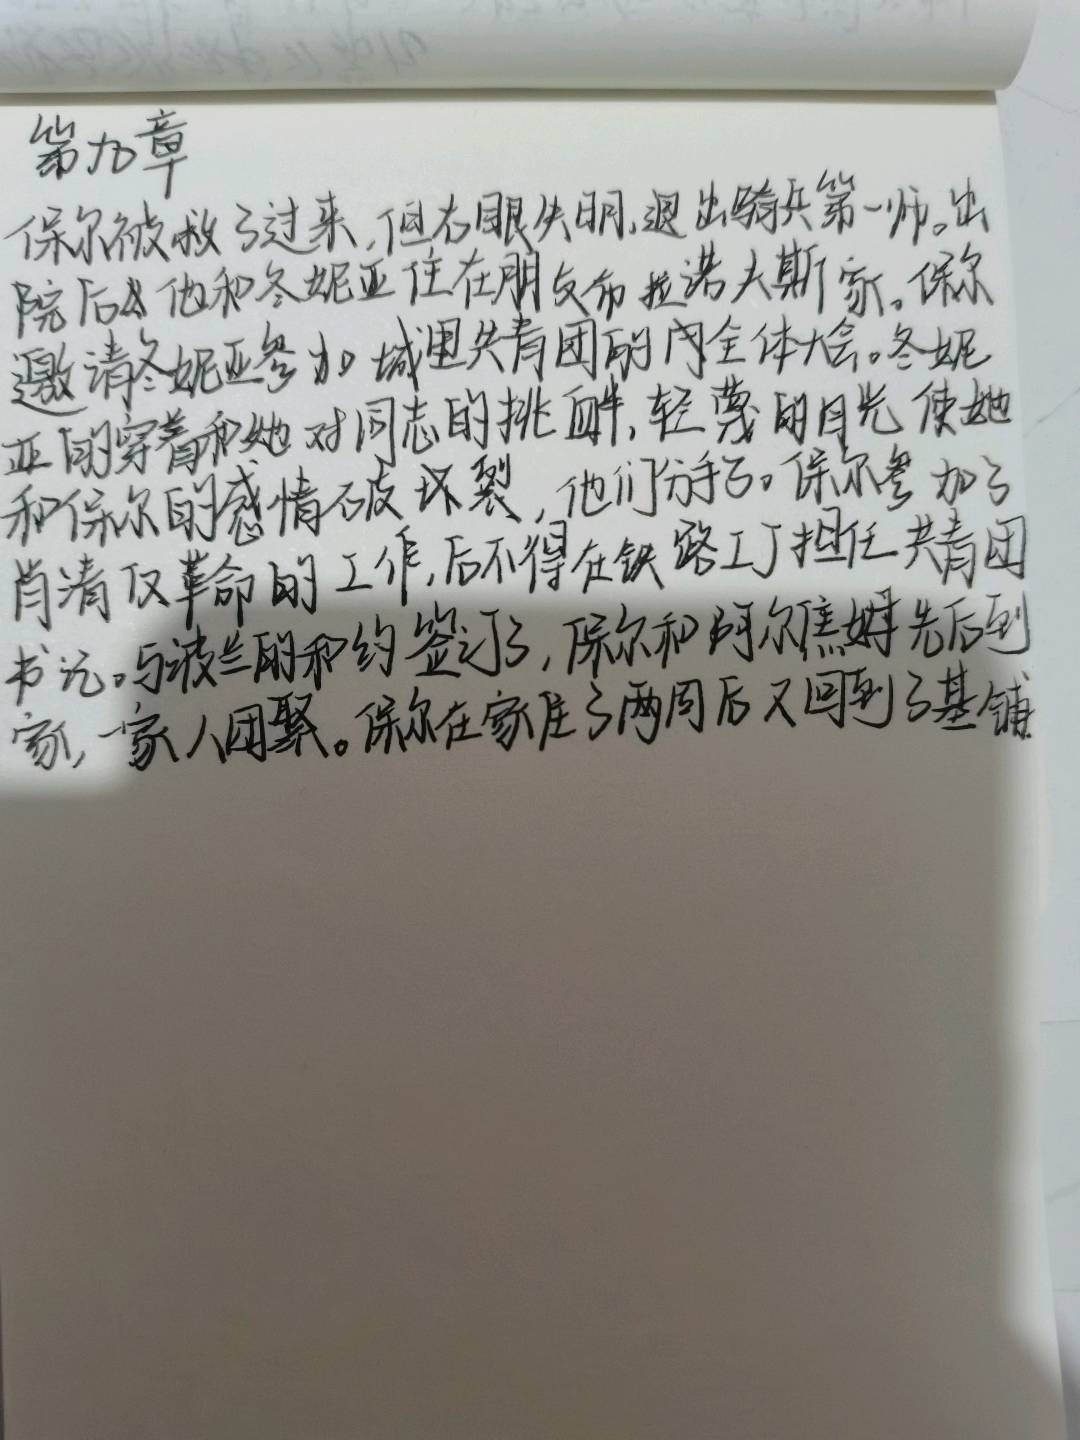 第九章
保尔被救了过来,但右眼失明,退出骑兵第一师。出
院后他和冬妮亚住在朋友布拉诺夫斯家。保尔
邀请冬妮亚参加城里共青团的内全体大会。冬妮
亚的穿着和她对同志的挑衅,轻蔑的目光使她
和保尔的感情破坏裂,他们分手了。保尔参加了
肖清反革命的工作,后不得在铁路工厂担任共青团
书记。与波兰的和约签订了,保尔和阿尔焦姆先后到
家,一家人团聚。保尔在家住了两周后又回到了基铺